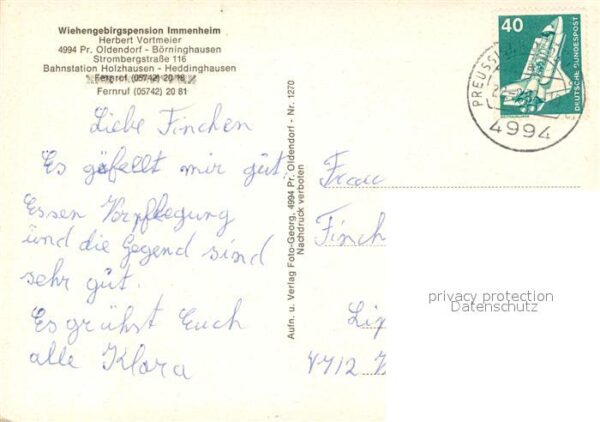 Wiehengebirgspension Immenheim
Herbert Vortmeier
4994 Pr. Oldendorf - Börninghausen
Strombergstraße 116
Bahnstation Holzhausen - Heddinghausen
Fernruf (05742) 20 16
Fernruf (05742) 20 81
Liebe Finchen
Es gefellt mir gut.
Essen Verpflegung
und die Gegend sind
sehr gut.
Es grühst Euch
alle Klara
Aufn. u. Verlag Foto-Georg, 4994 Pr. Oldendorf - Nr. 1270
Nachdruck verboten
40
DEUTSCHE BUNDESPOST
PREUSS
4994
Frau
Finch
privacy protection
Datenschutz